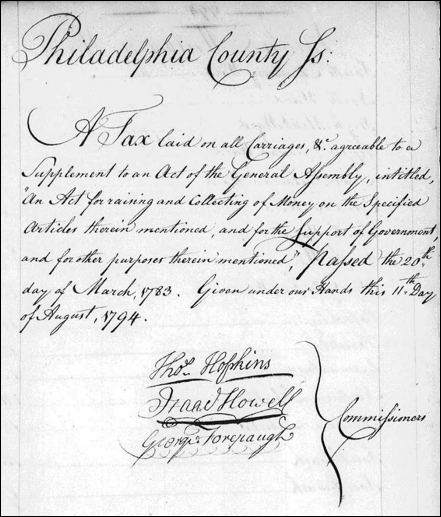 Philadelphia County Ss:
A Tax laid on all Carriages, &c. agreeable to a
Supplement to an Act of the General Assembly, intitled,
"An Act for raising and Collecting of Money on the Specified
Articles therein mentioned, and for the Support of Government,
and for other purposes therein mentioned," Passed the 20th
day of March, 1783. Given under our Hands this 11th Day
of August, 1794.
Thos. Hopkins
Isaac Howell
George Forepaugh
Commissioners